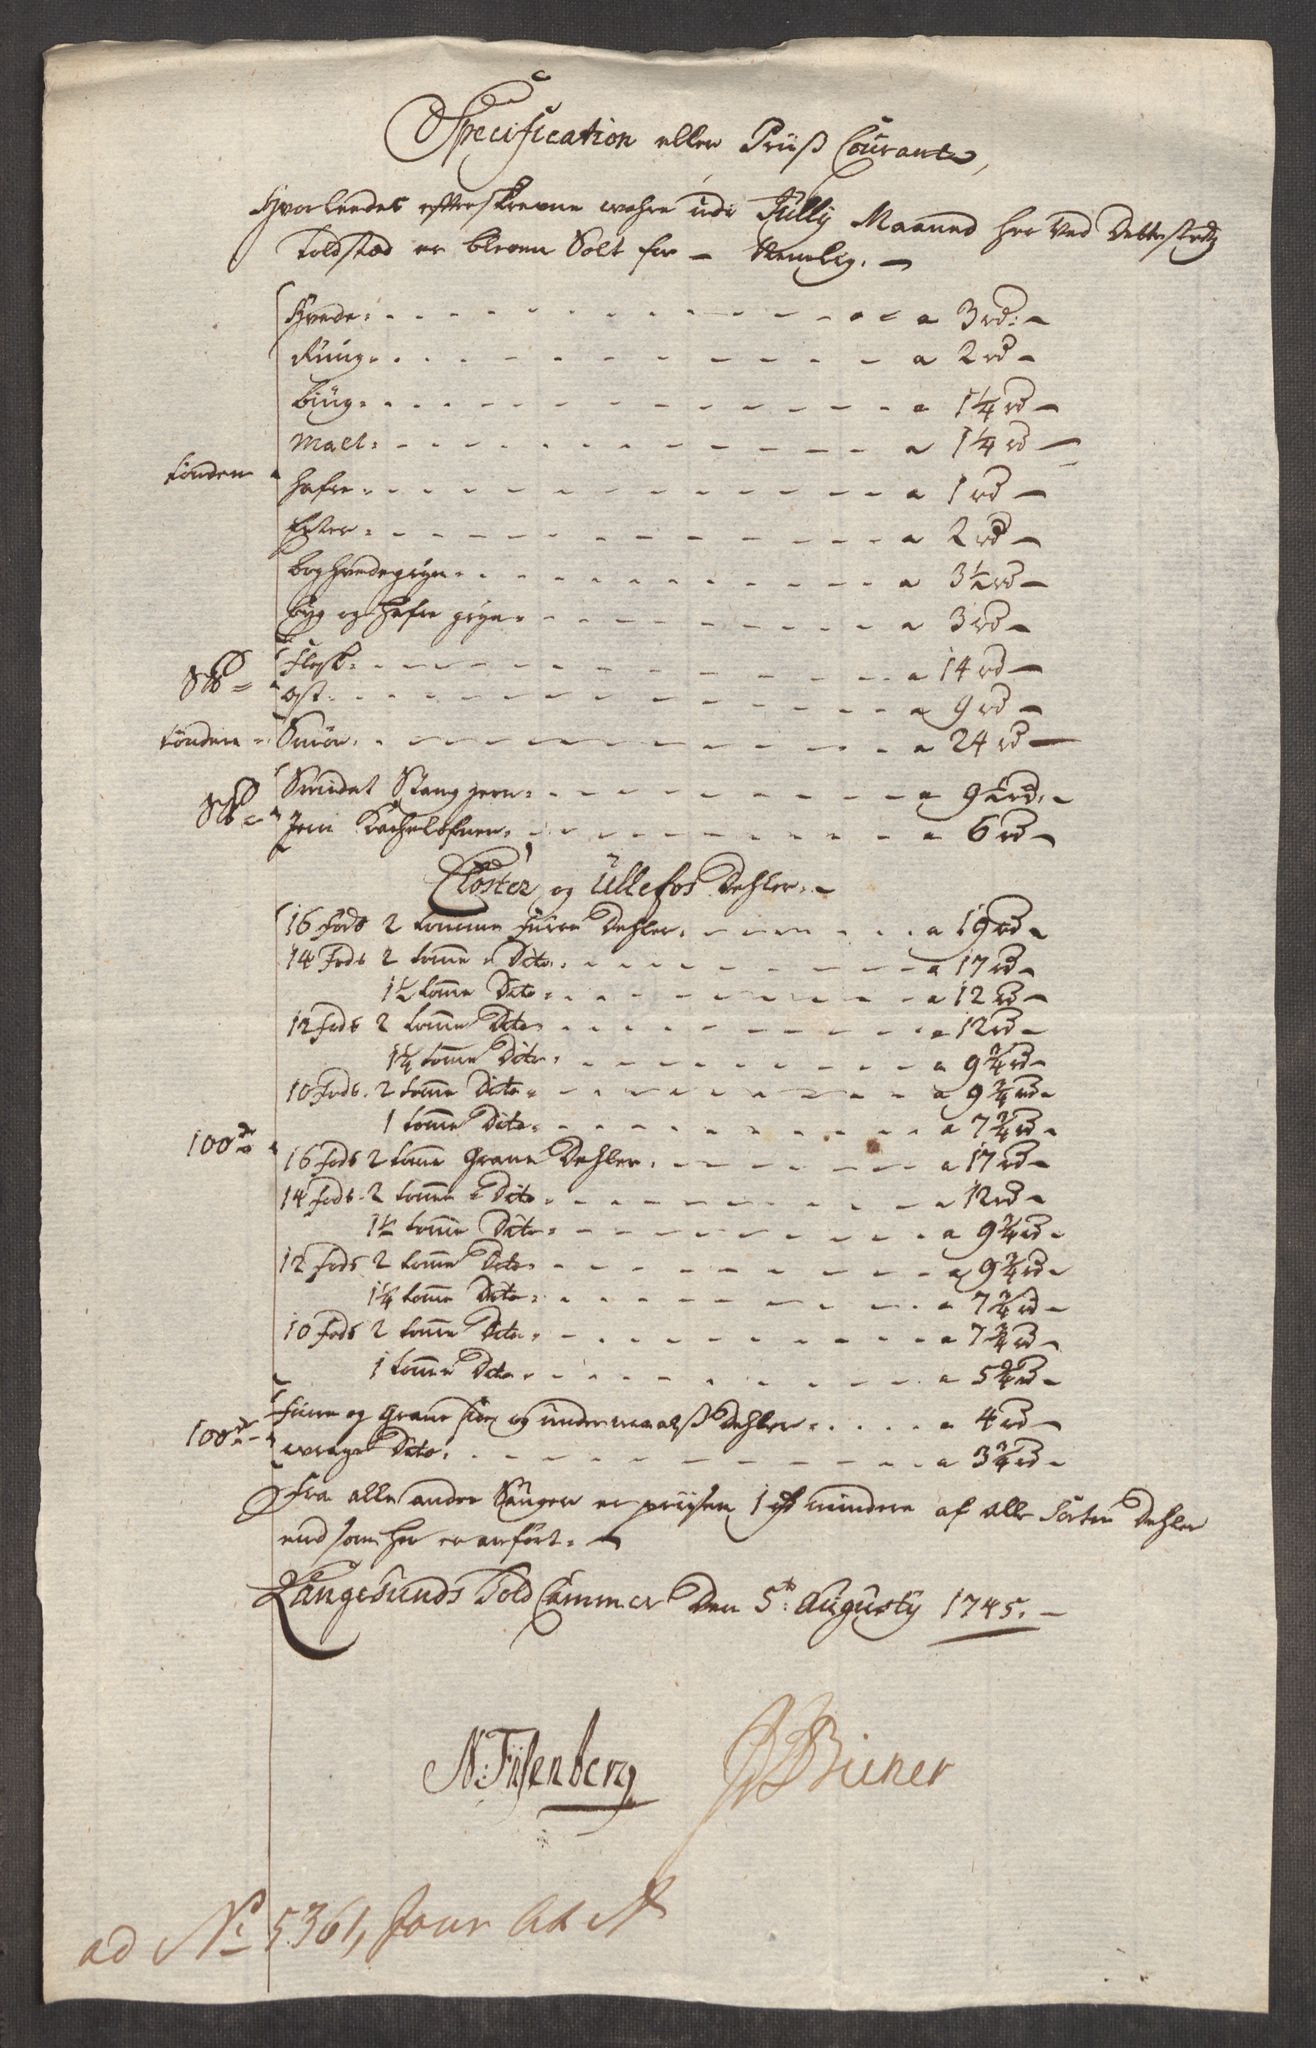 Specification eller Prüß Courant,
Hvorleedes efterskrevne wahre udi Jülly Maaned her ved dette stedz
Toldsted er bleven Solt for - Nemlig. -
Hvede. a 3 rd. -
Rüug. a 2 rd -
biüg. a 1¼ rd -
Malt. a 1¼ rd -
tönden hafre. a 1 rd -
Erter. a 2 rd -
boghvedegryn. a 3½ rd -
büg og Hafre gryn. a 3 rd -
Flesk. a 14 rd -
S℔ =
ost. a 9 rd -
tönden = Smör. a 24 rd -
Smidet Stang jern. a 9½ rd. -
S℔ = Jern Kachelofner. a 6 rd -
Closter og Üllefos Dehler. -
16 fods 2 tomme Furre Dehler. a 19 rd -
14 Fods 2 tomme Dito. a 17 rd -
1½ tomme Dito a 12 rd -
12 fods 2 tomme Dito a 12 rd -
1¼ tomme Dito. a 9¾ rd -
10 Fods. 2 tomme Dito. a 9¾ rd -
1 tomme Dito. a 7¾ rd -
100de 16 fods 2 tomme Grane Dehler. a 17 rd -
14 fods 2 tomme Dito a 12 rd -
1½ tomme Dito a 9¾ rd -
12 fods 2 tomme Dito a 9¾ rd -
1¼ tomme Dito. a 7¾ rd -
10 Fods 2 tomme Dito. a 7¾ rd -
1 tomme Dito. a 5¾ rd -
Furre og Grane sider og undermaalß Dehler. a 4 rd -
100de = wrage Dito. a 3¾ rd -
Fra alle andre Sauger er prüsen 1 rd mindre af alle Sorter Dehler
end som her er anfört. -
Langesunds Told Cammer Den 5te Augusty 1745. -
N: Filsenberg Biener
ad No 5361, Jour